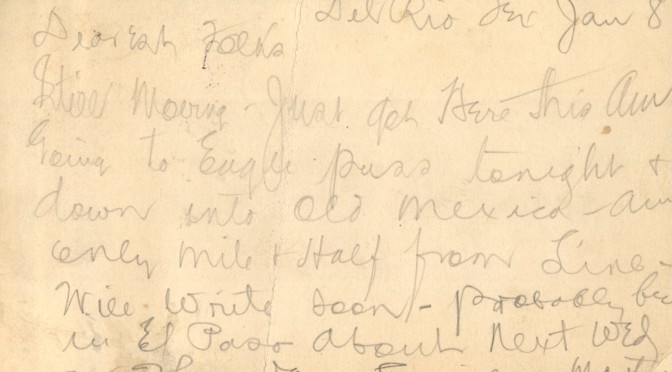 Del Rio Tex Jan 8
Dearest Folks
Still Moving - Just got Here this Am
Going to Eagle pass tonight +
down into Old Mexico - am
only mile + Half from Line -
Will Write soon - probably be
in El Paso About Next Wed